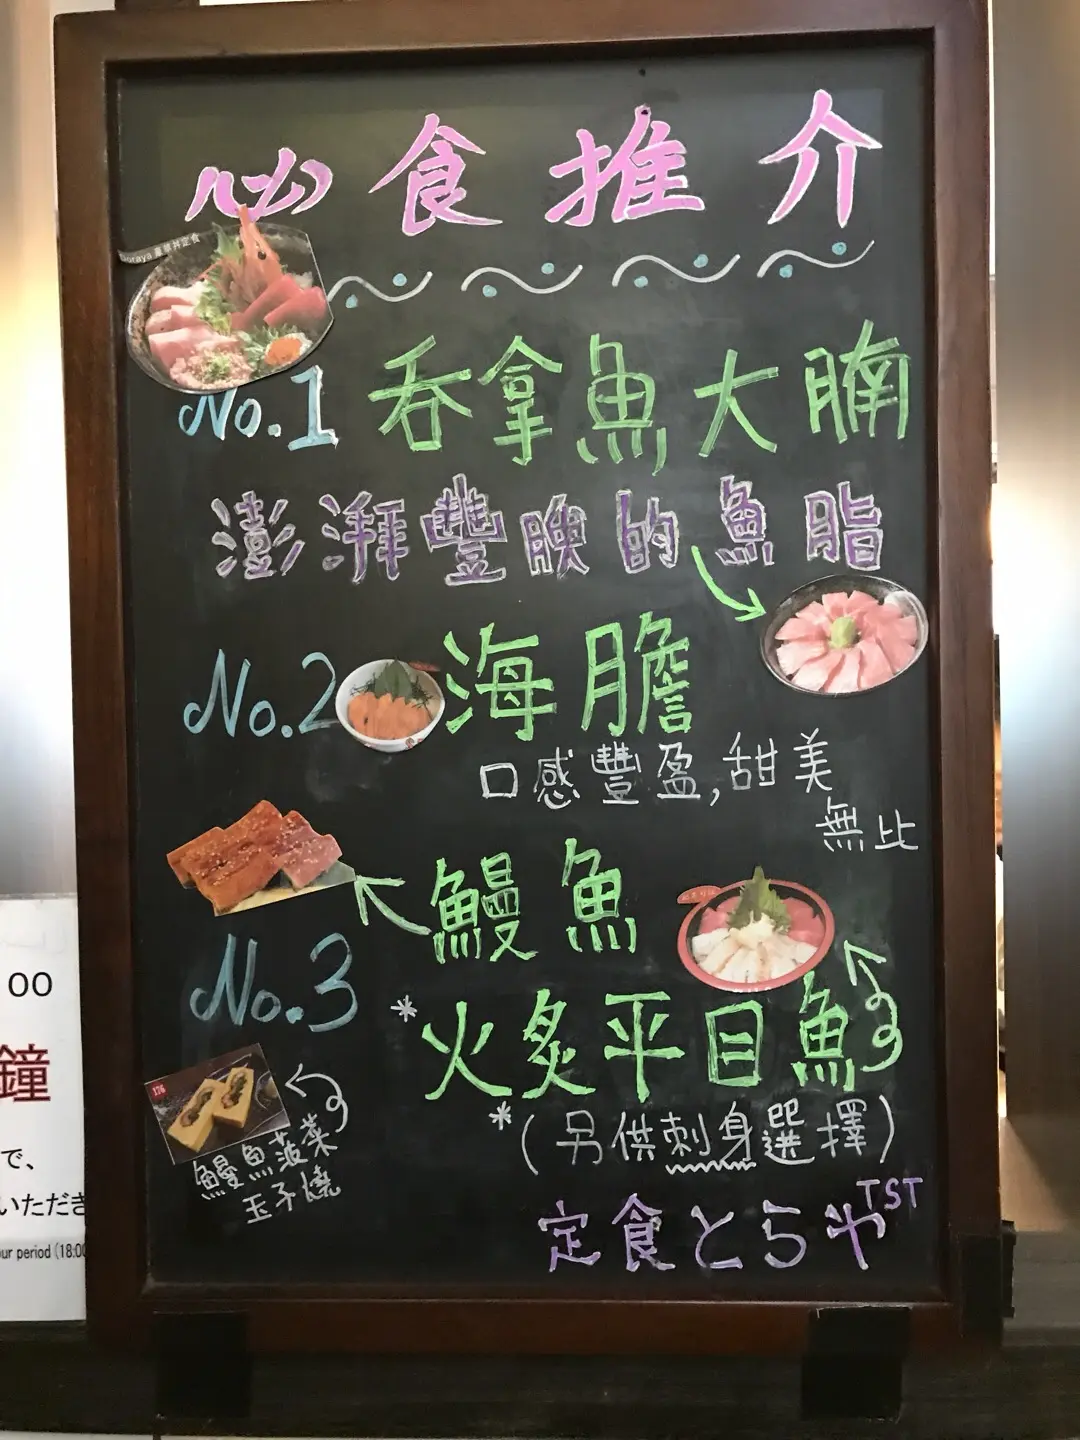 必食推介
Toraya 豪華丼定食
No.1 吞拿魚大腩
澎湃豐腴的魚脂
No.2 海膽
口感豐盈,甜美
無比
鰻魚
No.3
*火炙平目魚
*(另供刺身選擇)
鰻魚菠菜
玉子燒
定食とらやTST
00
鐘
で、
いただき
our period (18:00